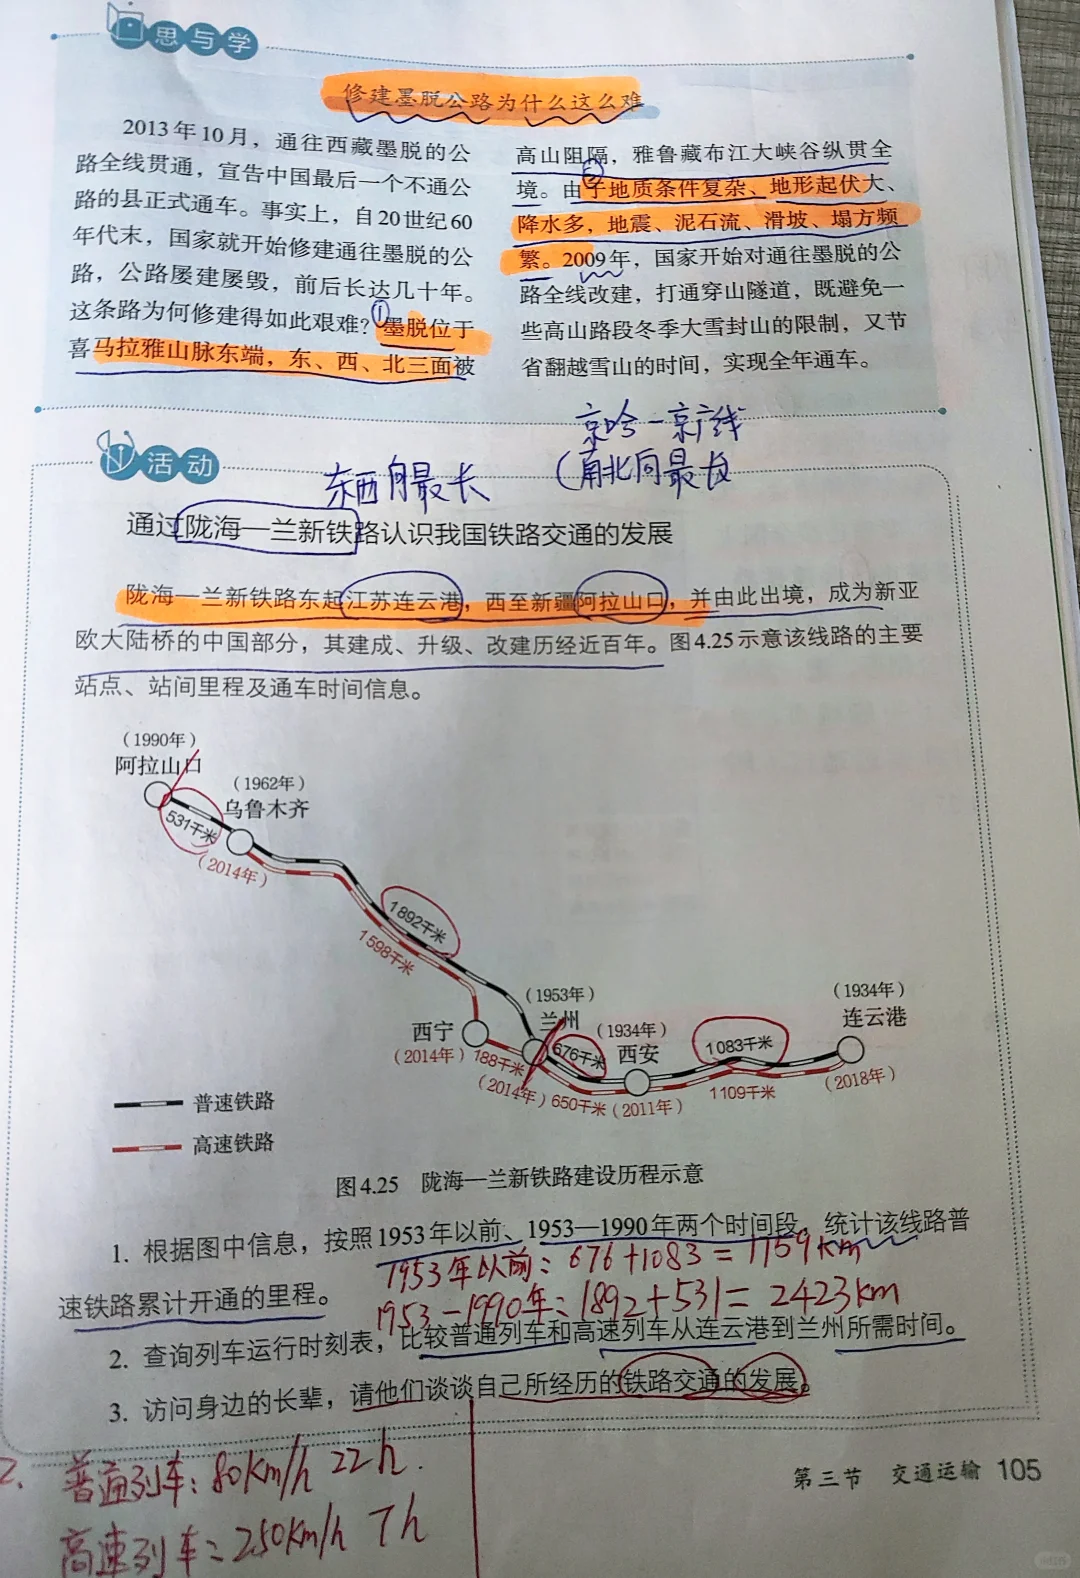 思与学
修建墨脱公路为什么这么难
2013年10月，通往西藏墨脱的公
路全线贯通，宣告中国最后一个不通公
路的县正式通车。事实上，自20世纪60
年代末，国家就开始修建通往墨脱的公
路，公路屡建屡毁，前后长达几十年。
这条路为何修建得如此艰难？①墨脱位于
喜马拉雅山脉东端，东、西、北三面被
高山阻隔，雅鲁藏布江大峡谷纵贯全
境。②由于地质条件复杂、地形起伏大、
降水多，地震、泥石流、滑坡、塌方频
繁。2009年，国家开始对通往墨脱的公
路全线改建，打通穿山隧道，既避免一
些高山路段冬季大雪封山的限制，又节
省翻越雪山的时间，实现全年通车。
活动
东西向最长
京哈—京广线
（南北向最长
通过陇海—兰新铁路认识我国铁路交通的发展
陇海—兰新铁路东起江苏连云港，西至新疆阿拉山口，并由此出境，成为新亚
欧大陆桥的中国部分，其建成、升级、改建历经近百年。图4.25示意该线路的主要
站点、站间里程及通车时间信息。
（1990年）
阿拉山口
（1962年）
乌鲁木齐
531千米
（2014年）
1892千米
1598千米
（1953年）
兰州
西宁
（2014年）
188千米
（2014年）
676千米
650千米
（1934年）
西安
（2011年）
1083千米
1109千米
（1934年）
连云港
（2018年）
普速铁路
高速铁路
图4.25 陇海—兰新铁路建设历程示意
1. 根据图中信息，按照1953年以前、1953—1990年两个时间段，统计该线路普
速铁路累计开通的里程。
1953年以前：676+1083=1759km
1953-1990年：1892+531=2423km
2. 查询列车运行时刻表，比较普通列车和高速列车从连云港到兰州所需时间。
3. 访问身边的长辈，请他们谈谈自己所经历的铁路交通的发展。
2、普通列车：80km/h 22h.
高速列车：250km/h 7h
第三节 交通运输 105